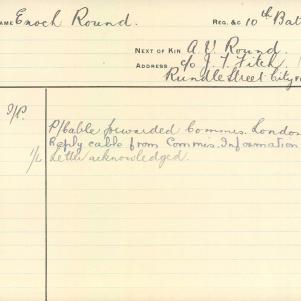 NAME Enoch Round. REG. &C 10th Bat
NEXT OF KIN A. V. Round.
ADDRESS c/o J. F. Fitch
Rundle Street City
I/P.
P/Cable forwarded Commis. London
Reply cable from Commis. Information
Letter acknowledged.